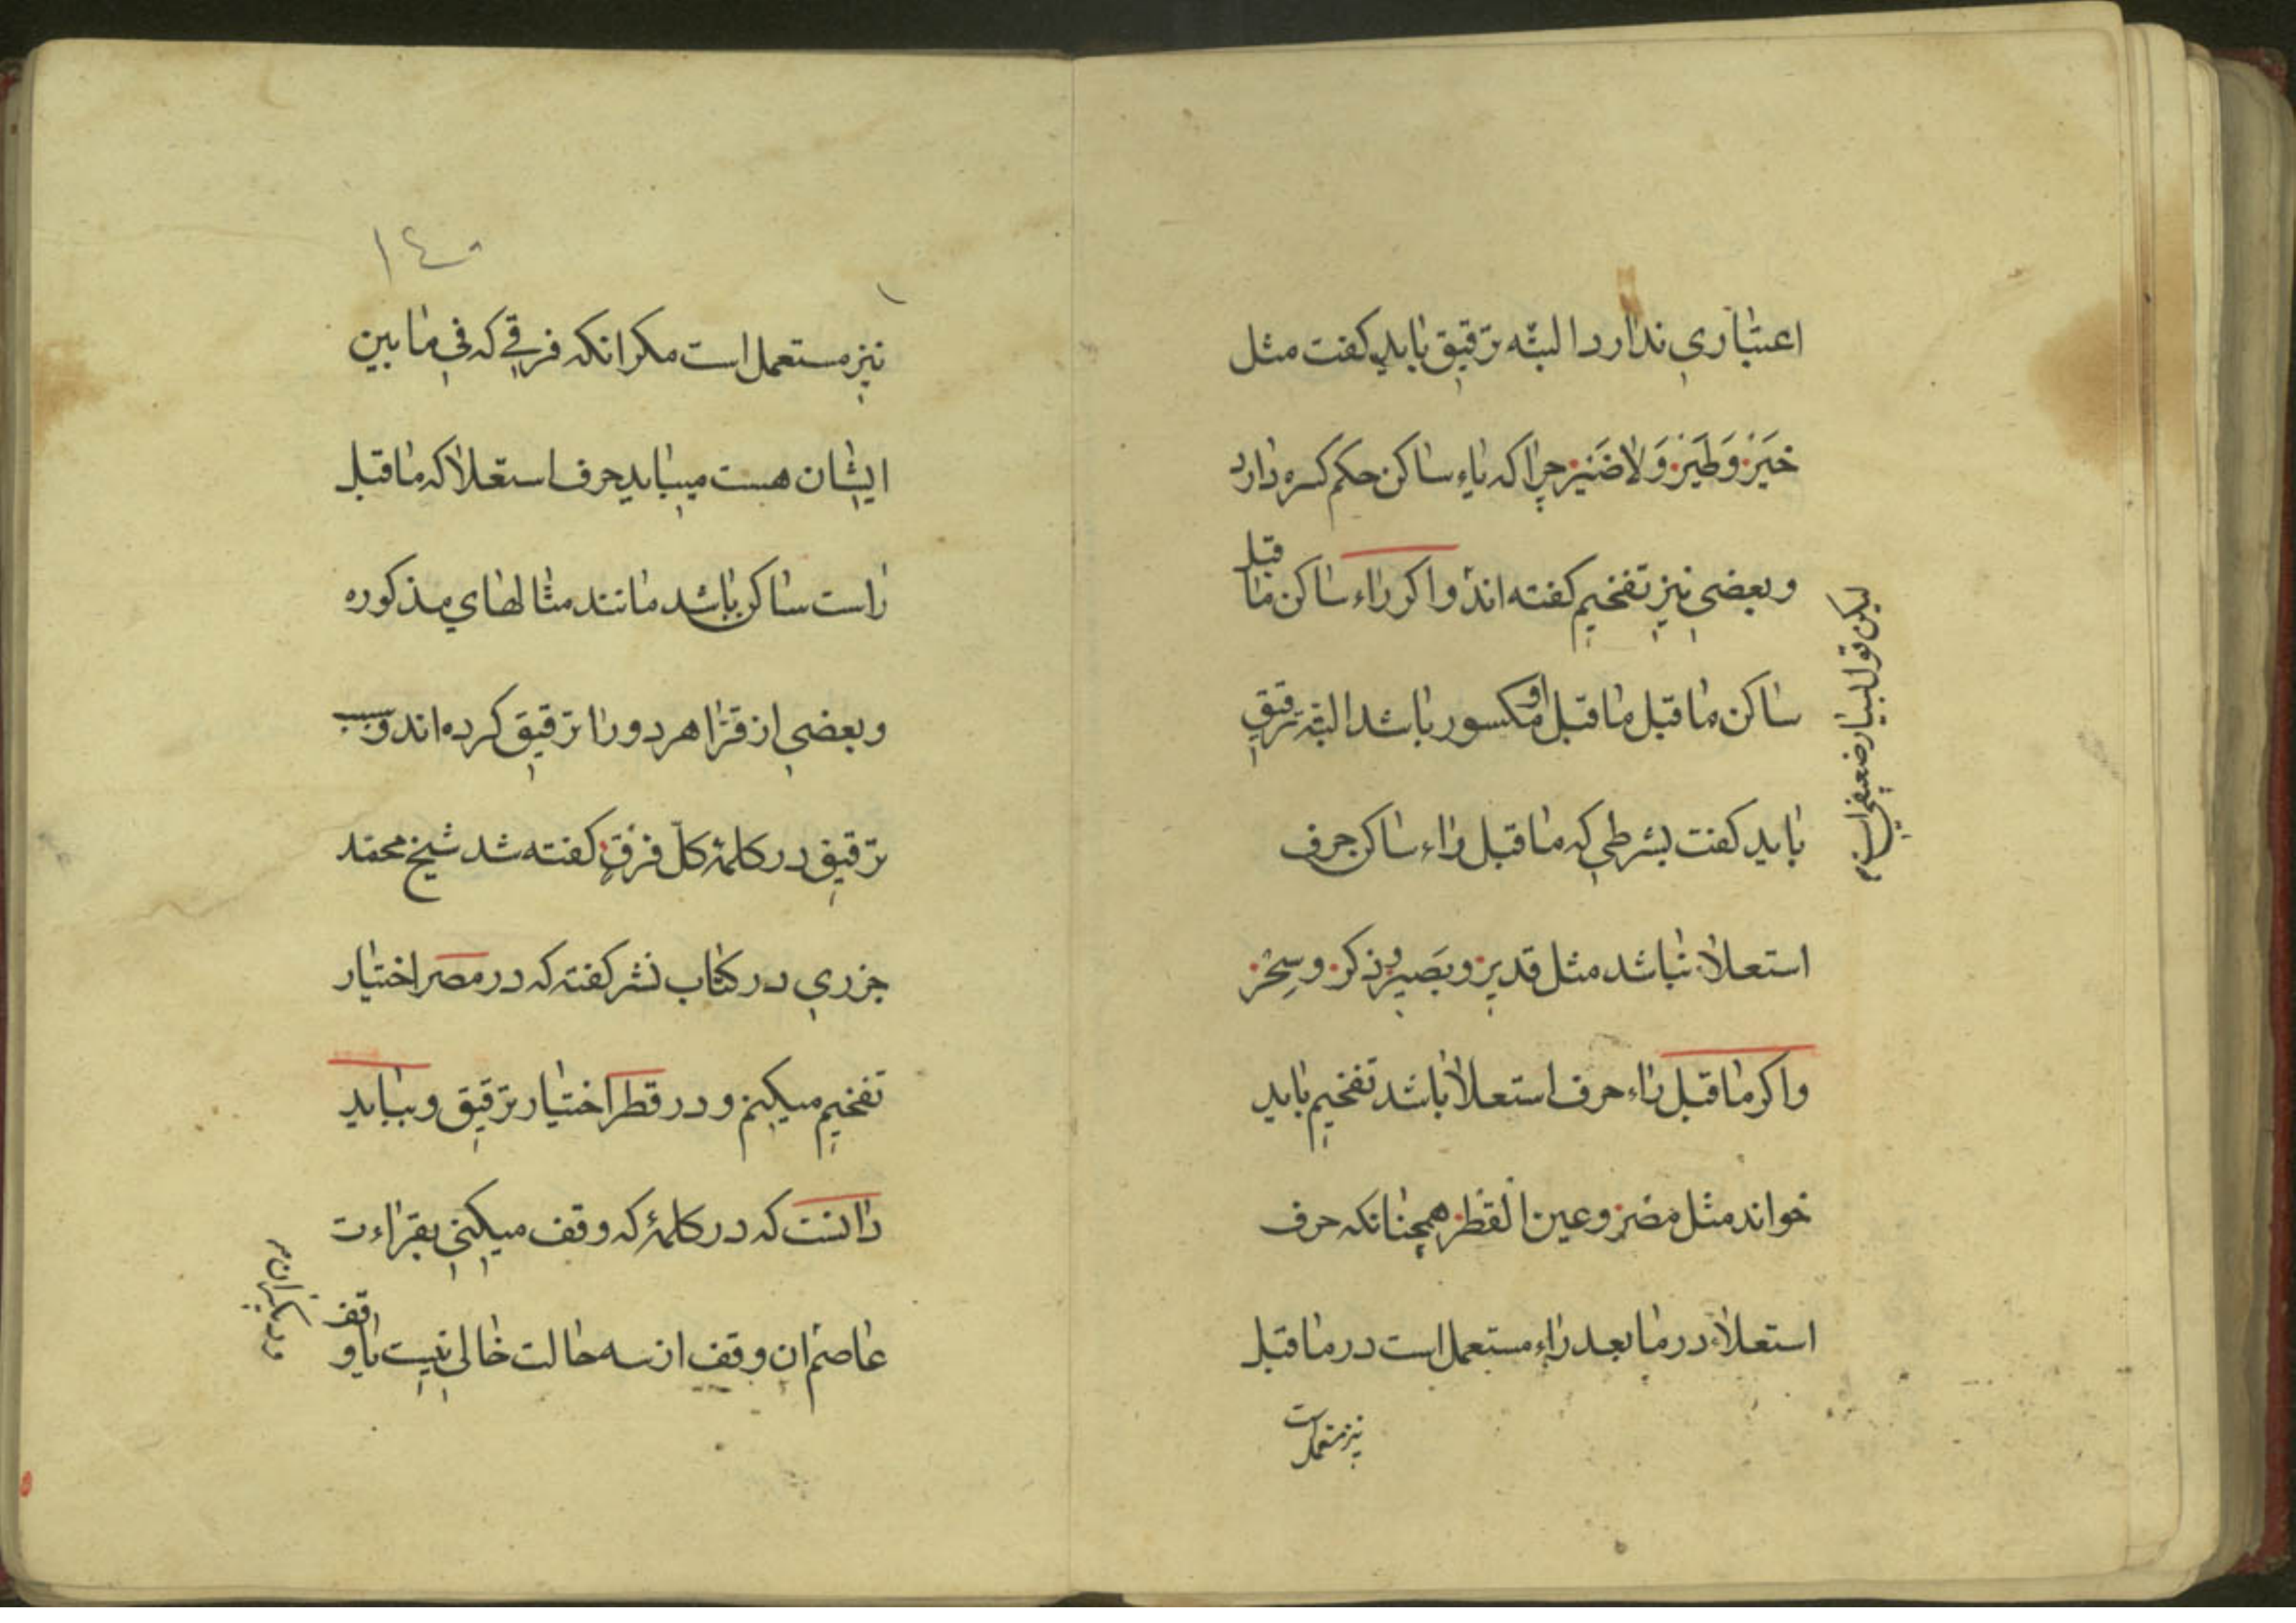 اعتباری ندارد البتّه ترقیق باید کفت مثل
خَیْرْ وَطَیْرْ وَلاضَیْرْ چرا که یاء ساکن حکم کسره دارد
وبعضی نیز تفخیم کفته اند واکر راء ساکن ما قبل
ساکن ما قبل ما قبل او مکسور باشد البته ترقیق
باید کفت بشرطی که ما قبل راء ساکن حرف
استعلاء نباشد مثل قدیرْ وبَصیرْ وذِکرْ وسِحْرْ
واکر ما قبل راء حرف استعلا باشد تفخیم باید
خواند مثل مصرْ وعین القطرْ همچنانکه حرف
استعلاء در ما بعد راء مستعمل است در ما قبل
نیز مستعمل است
لیکن قول بسیار ضعیفی است م
۱٤۰
نیز مستعمل است مکر انکه فرقی که فی ما بین
ایشان هست میباید حرف استعلا که ما قبل
راست ساکن باشد مانند مثالهای مذکوره
وبعضی از قرّا هر دو را ترقیق کرده اند وسبب
ترقیق در کلمۀ کلّ فرقٍ کفته شد شیخ محمّد
جزری در کتاب نشر کفته که در مصر اختیار
تفخیم میکنم ودر قطر اختیار ترقیق وبباید
دانست که در کلمۀ که وقف میکنی بقراءت
عاصم ان وقف از سه حالت خالی نیست یا وقف